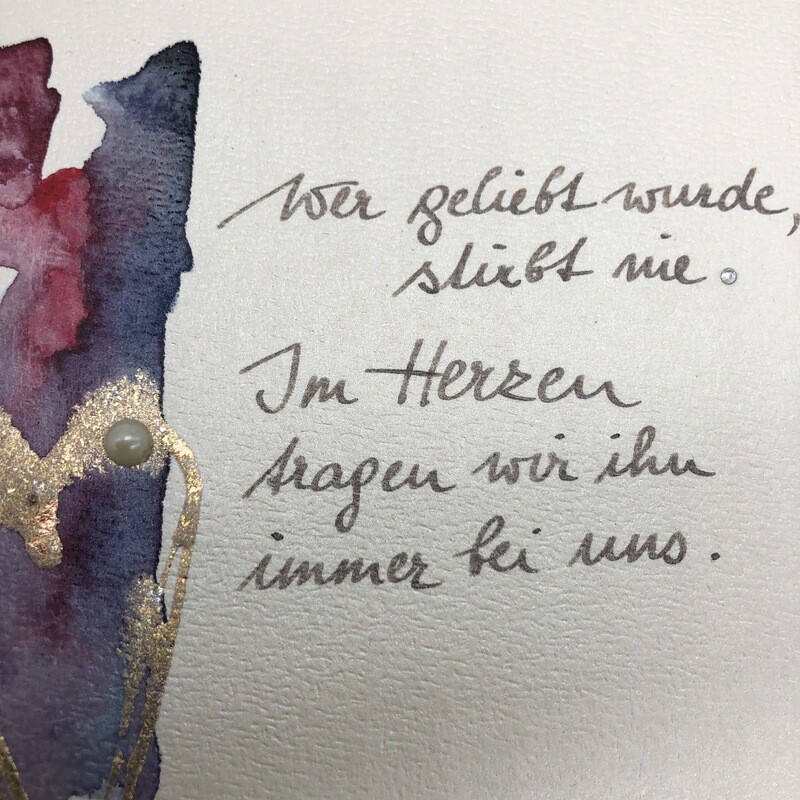 Wer geliebt wurde,
stirbt nie.
Im Herzen
tragen wir ihn
immer bei uns.